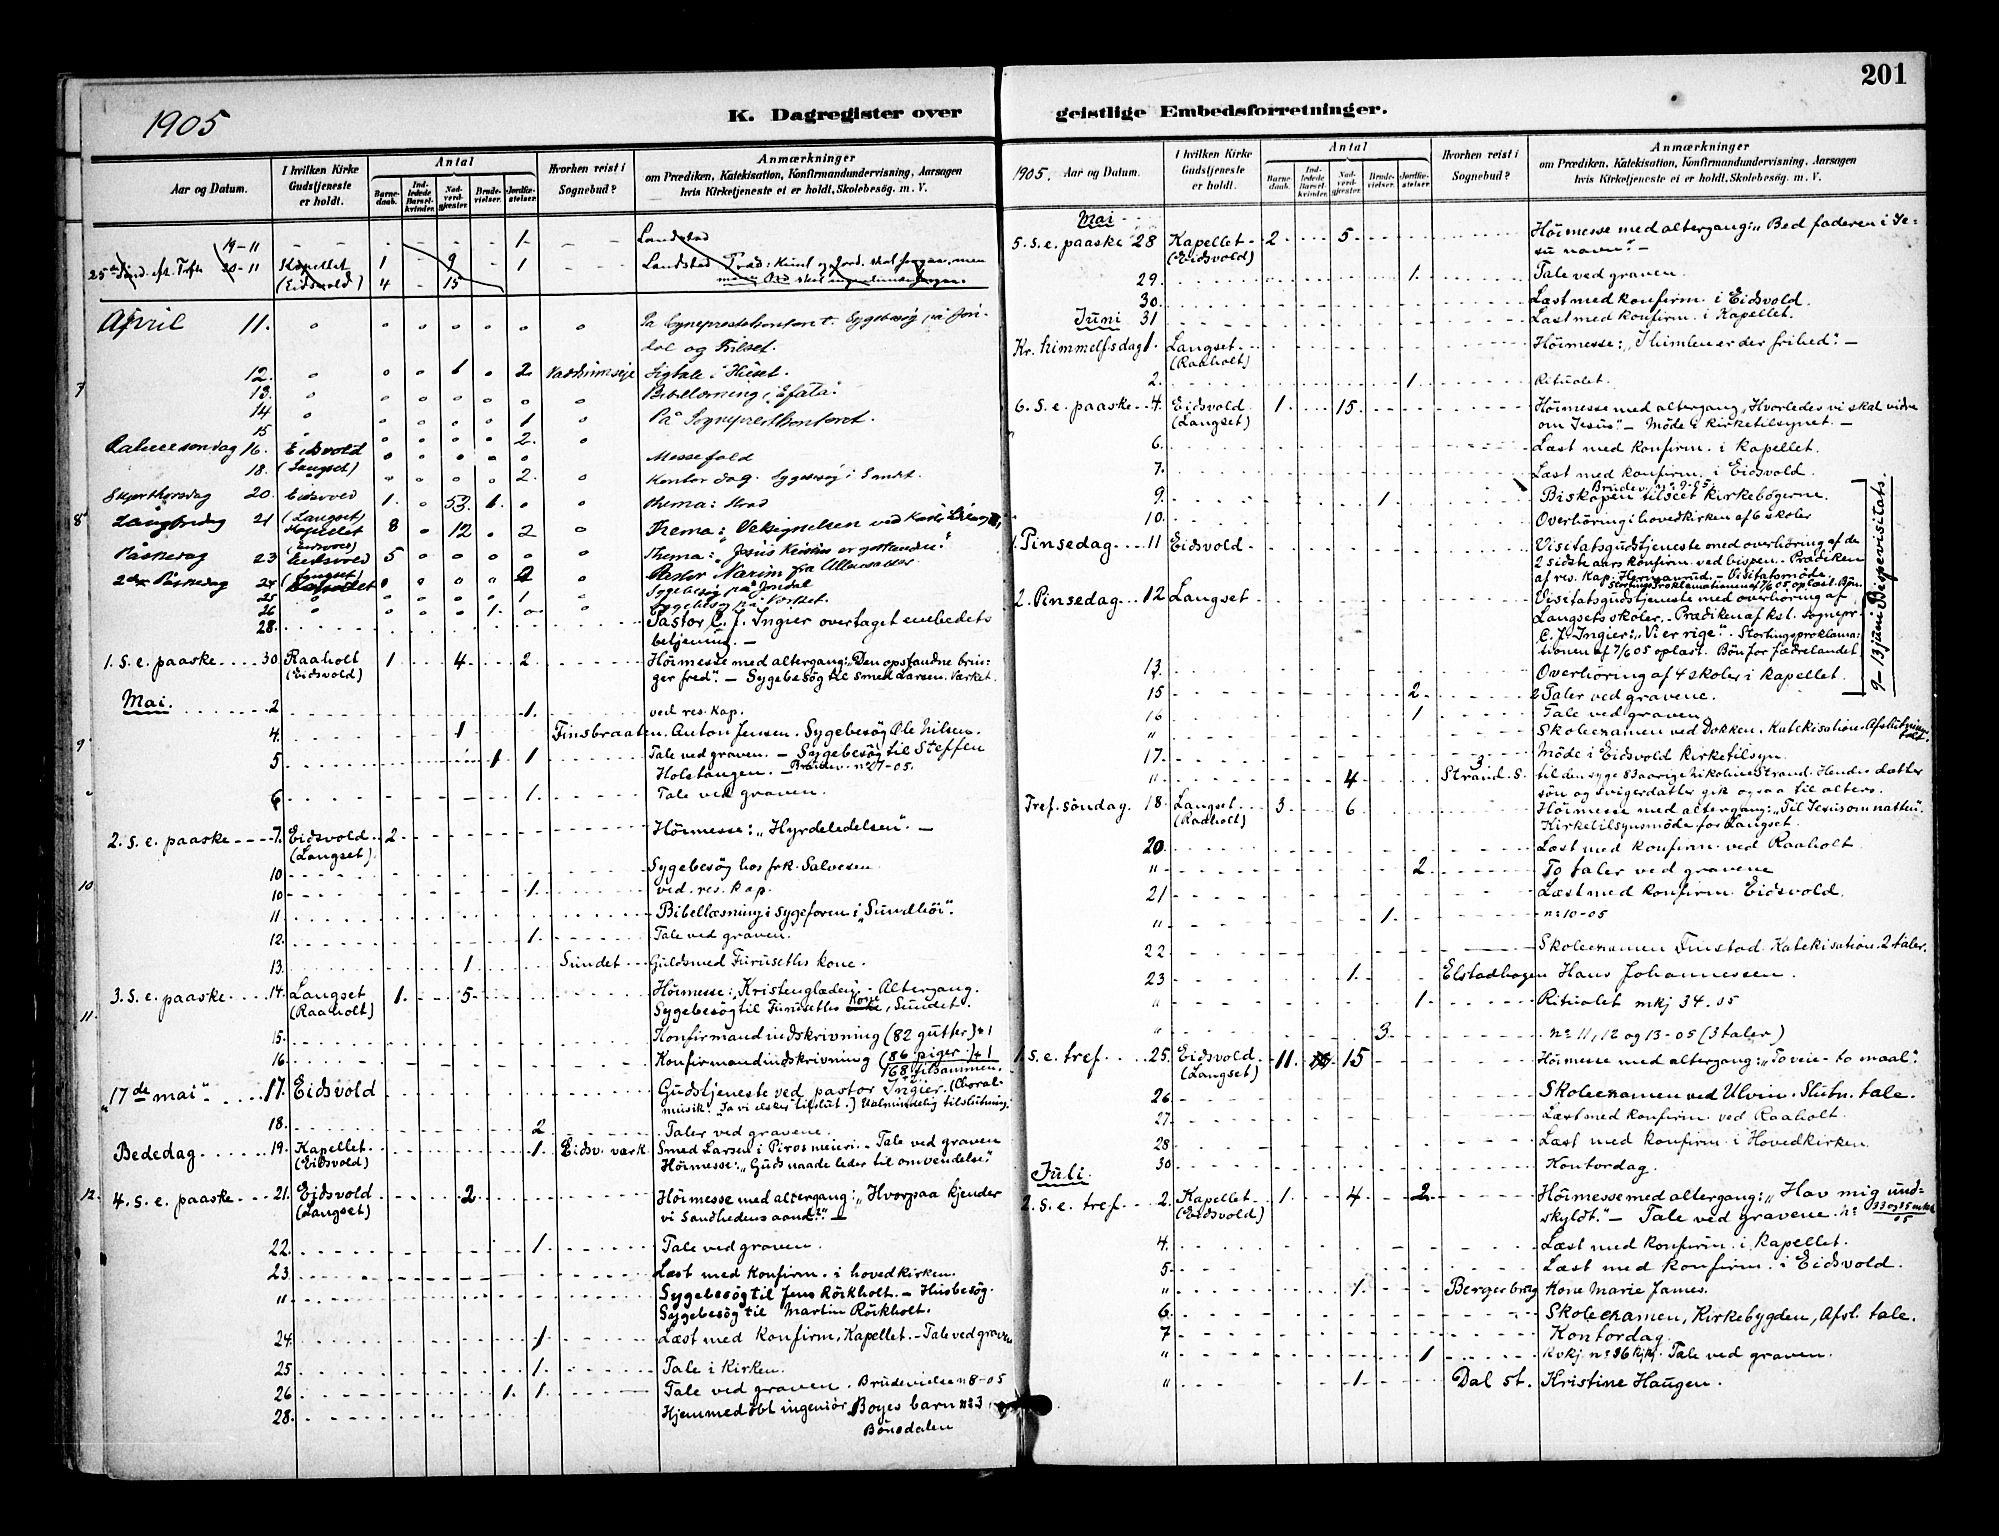 201
1905
K. Dagregister over geistlige Embedsforretninger.
Aar og Datum.
I hvilken Kirke Gudstjeneste er holdt.
Antal
Barnedaab.
Indledede Barselkvinder.
Nadverdgjæster.
Brudevielser.
Jordfæstelser.
Hvorhen reist i Sognebud?
Anmærkninger
om Prædiken, Katekisation, Konfirmandundervisning, Aarsagen
hvis Kirketjeneste ei er holdt, Skolebesøg. m. V.
19-11 1. Landstad
20-11 Kapellet 1 9 1 Landstad
(Eidsvold) 4 15
April 11.
dal og
12. 1 2. Ligtale i Huset.
13. Bibellæsning i "Efata."
14 1 På Sogneprestkontoret.
15 2.
Palmesøndag 16. Eidsvold Messefald
(Langset)
18. 2. Kontordag. Sygebesøg i Sundet.
Skjærthorsdag 20. Eidsvold 1. 53. 1. Thema:
(Langset)
Langfredag 21 Kapellet 8 12 2 Thema: Velsignelsen ved
(Eidsvold)
Påskedag 23 Eidsvold 5 Thema: "Jesus Kristus er opstanden."
(Langset)
2den Påskedag 24 Kapellet Pastor fra Ullensaker
25 1 Sygebesøg på
26 1. Sygebesøg på Værket.
28. Pastor C. J. Ingier overtaget embedets
betjening. —
1. S. e. paaske 30 Raaholt 1 4 2 Höimesse med altergang: "Den opstandne brin-
(Eidsvold) ger fred". — Sygebesög til smed Larsen. Værket.
Mai. 2 1. ved res. kap.
4. 1 Finsbraaten. Anton Jensen. Sygebesög Ole Nilsen.
5 1 1 Tale ved graven. — Sygebesög til Steffen
Holstangen. — Brudev. no 7-05.
6 1. Tale ved graven.
2. S. e. paaske 7. Eidsvold 2. Höimesse: "Hyrdeledelsen". —
(Langset)
10 Sygebesög hos frk. Salvesen
10 1. ved. res. kap.
11 Bibellæsning i Sygeforen. i "Sundhöi".
12. 1. Tale ved graven.
13. 1 Sundet Guldsmed Furuseths kone.
3. S. e. paaske 14. Langset 1. 5. Höimesse: "Kristenglæden". Altergang.
(Raaholt) Sygebesög til Furuseths Kone, Sundet.
15. Konfirmandindskrivning (82 gutter) + 1
16. Konfirmandindskrivning (86 piger) + 1
168 tilsammen.
"17de mai". 17. Eidsvold Gudstjeneste ved pastor Ingier. (Choral-
musik. "Ja vi elsker" tilslut.) Ualmindelig tilslutning.
18. 2 Taler ved gravene.
Bededag 19. Kapellet 1. Eidsv. værk Smed Larsen i Piros meieri. - Tale ved graven
(Eidsvold) Höimesse: "Guds naade leder til omvendelse".
4. S. e. paaske 21. Eidsvold 2. Höimesse med altergang: "Hvorpaa kjender
(Langset) vi Sandhedens aand?" —
22. 1. Tale ved graven.
23. Læst med konfirm. i hovedkirken.
" Sygebesög til Jens Röckholt. — Husbesög.
Sygebesög til Martin Röckholt.
24. 1 Læst med konfirm, Kapellet. - Tale ved graven
25 1. Tale i kirken.
26 1. 1. Tale ved graven. Brudevielse no 8-05
28. Hjemmedöbt ingeniör Boyes barn no 3
Bönsdalen
7
8
9
10
11.
12.
1905. Aar og Datum.
I hvilken Kirke Gudstjeneste er holdt.
Antal
Barnedaab.
Indledede Barselkvinder.
Nadverdgjæster.
Brudevielser.
Jordfæstelser.
Hvorhen reist i Sognebud?
Anmærkninger
om Prædiken, Katekisation, Konfirmandundervisning, Aarsagen
hvis Kirketjeneste ei er holdt, Skolebesøg. m. V.
Mai
5. S. e. paaske 28 Kapellet 2 5 Höimesse med altergang: "Bed faderen i Je-
(Eidsvold) su navn". —
29. 1. Tale ved graven.
30. Læst med konfirm. i Eidsvold.
31 Læst med konfirm. i Kapellet.
Juni
Kr. himmelfsdag 1. Langset Höimesse: "I himlen er der frihed". —
(Raaholt)
2. 1. Ritualet.
6. S. e. paaske 4. Eidsvold 1. 15. Höimesse med altergang, "Hvorledes vi skal vidne
(Langset) om Jesus" — Möde i kirketilsynet. —
6. Læst med konfirm. i kapellet.
7. Læst med konfirm. i Eidsvold.
Brudev. no 9-05.
9. 1 Biskopen tilseet kirkebögerne.
10. Overhöring i hovedkirken af 6 skoler
1. Pinsedag 11 Eidsvold Visitatsgudstjeneste med overhöring af de
2 sidste aars konfirm. ved bispen. Prædiken
af res. kap. Hermanrud. — Visitatsmöde
Stortingsproklamationen af 7/6 05 oplæst. Bön.
2. Pinsedag 12 Langset Visitatsgudstjeneste med overhöring af
Langsets skoler. Prædiken af kst. sognepr.
C. J. Ingier: "Vi er rige". Stortingsproklama-
tionen af 7/6 05 oplæst. Bön for fædrelandet
13. Overhöring af 4 skoler i kapellet.
9–13 juni Bispevisitats.
15 2 2 Taler ved gravene.
16 1 Tale ved graven
" Skoleexamen ved Dokken. Katekisation. Afslutnings-
tale.
17. Möde i Eidsvold kirketilsyn.
" 4 Strand. S. til den syge 83 aarige Nikoline Strand. Hendes datter
sön og svigerdatter gik ogsaa til alters.
Tref. söndag. 18. Langset 3 6 Höimesse med altergang: "Til Jesus om natten".
(Raaholt) Kirketilsynsmöde for Langset.
20. Læst med konfirm. ved Raaholt.
" 2 To taler ved gravene
21 Læst med konfirm. Eidsvold.
" 1. no 10-05
22 Skoleexamen Finstad Katekisation. 2 taler.
23 1. Elstadhagen Hans Johannessen.
" 1. Ritualet mkj 34.05
" 3. no 11, 12 og 13-05 (3 taler)
1. S. e. tref. 25. Eidsvold 11 15 Höimesse med altergang: "To veie – to maal".
(Langset)
26. Skoleexamen ved Ulvin. Slutn. tale.
27. Læst med konfirm. ved Raaholt.
28 Læst med konfirm. i Hovedkirken
30 Kontordag.
Juli.
2. S. e. tref. 2. Kapellet 1. 4 2 Höimesse med altergang: "Hav mig und-
(Eidsvold) skyldt." — Tale ved gravene. no
4. Læst med konfirm. i kapellet.
5. Læst med konfirm. i Eidsvold.
" 1. Bergerbrag Kone Marie James.
6. Skoleexamen, Kirkebygden, Afsl. tale.
7 Kontordag.
" 1 Kvkj. no 36 Tale ved graven.
" 1 Dal st. Kristine Haugen.